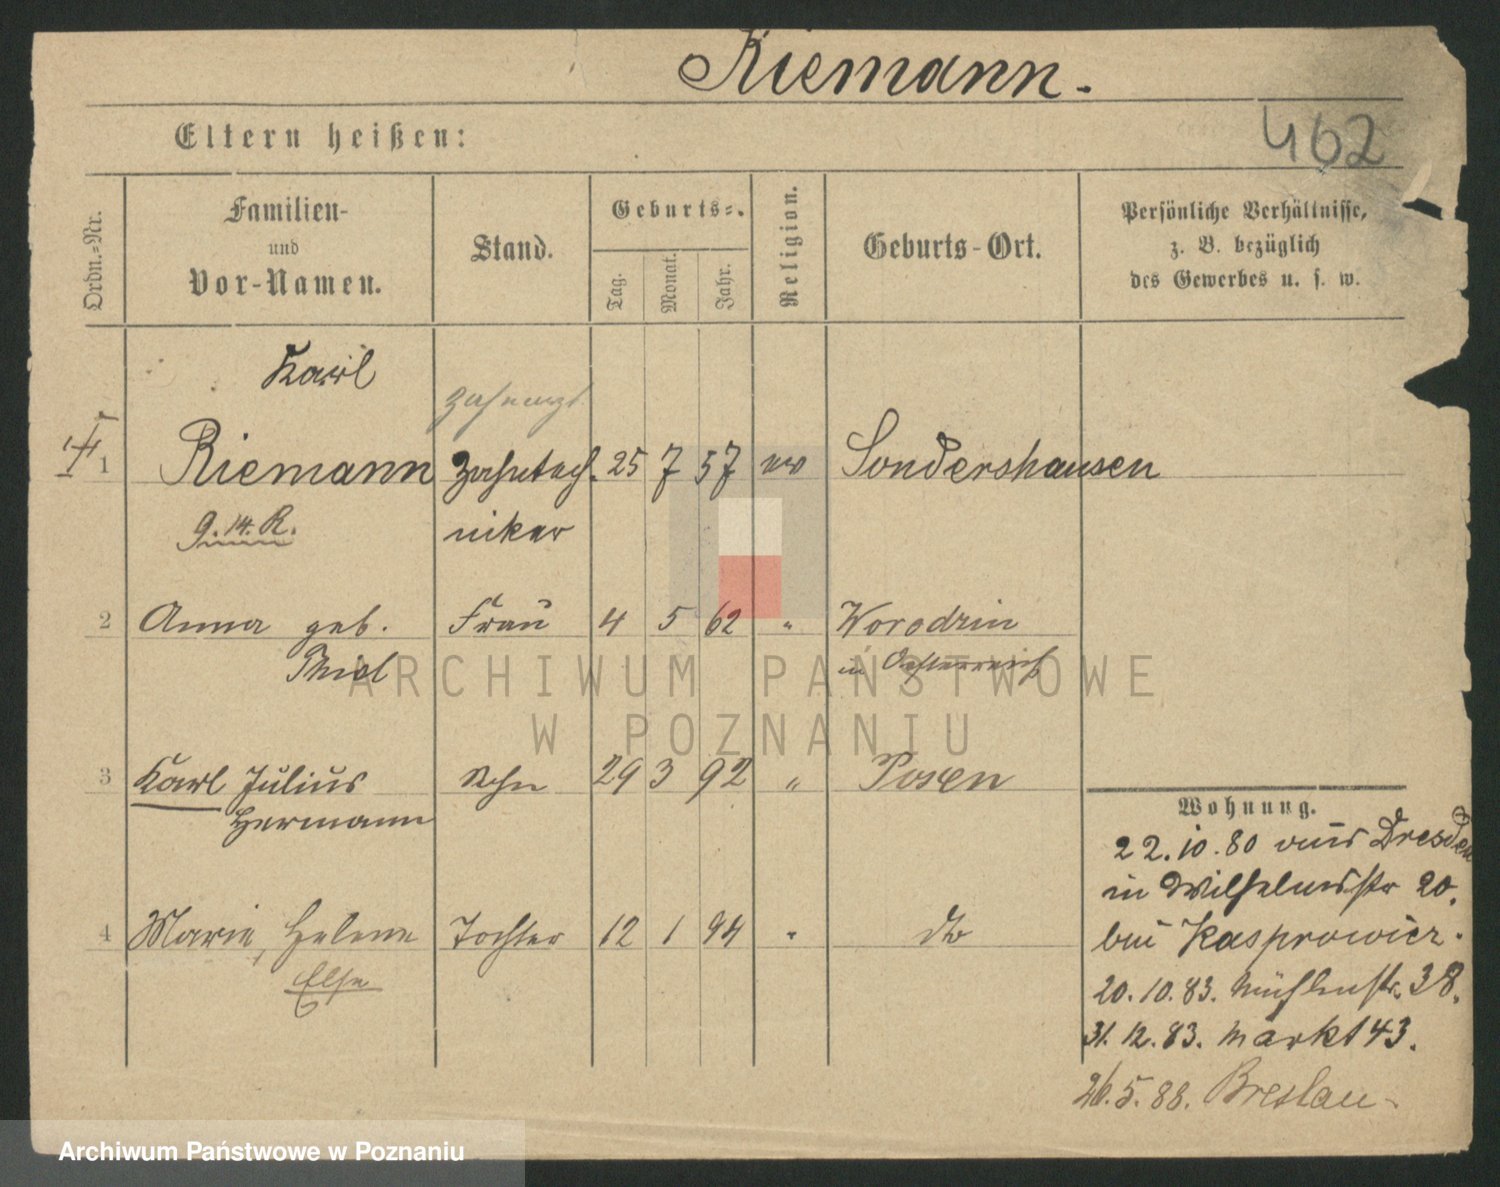 Riemann.
462
Eltern heißen:
Ordn.=Nr.
Familien-
und
Vor-Namen.
Stand.
Geburts=.
Tag.
Monat.
Jahr.
Religion.
Geburts-Ort.
Persönliche Verhältnisse,
z. B. bezüglich
des Gewerbes u. s. w.
Karl
Zahnarzt
1 Riemann Zahntech. 25 7 57 ev Sondershausen
g. 14. R. niker
2 Anna geb. Frau 4 5 62 " Worodzin
Thiel in Oesterreich
3 Karl Julius Sohn 29 3 92 " Posen
Hermann
4 Marie, Helene Tochter 12 1 94 " do
Else
Wohnung.
22.10.80 aus Dresden
in Wilhelmsstr 20.
bei Kasprowicz.
20.10.83. Mühlenstr. 38.
31.12.83. Markt 43.
26.5.88. Breslau
ARCHIWUM PAŃSTWOWE
W POZNANIU
Archiwum Państwowe w Poznaniu